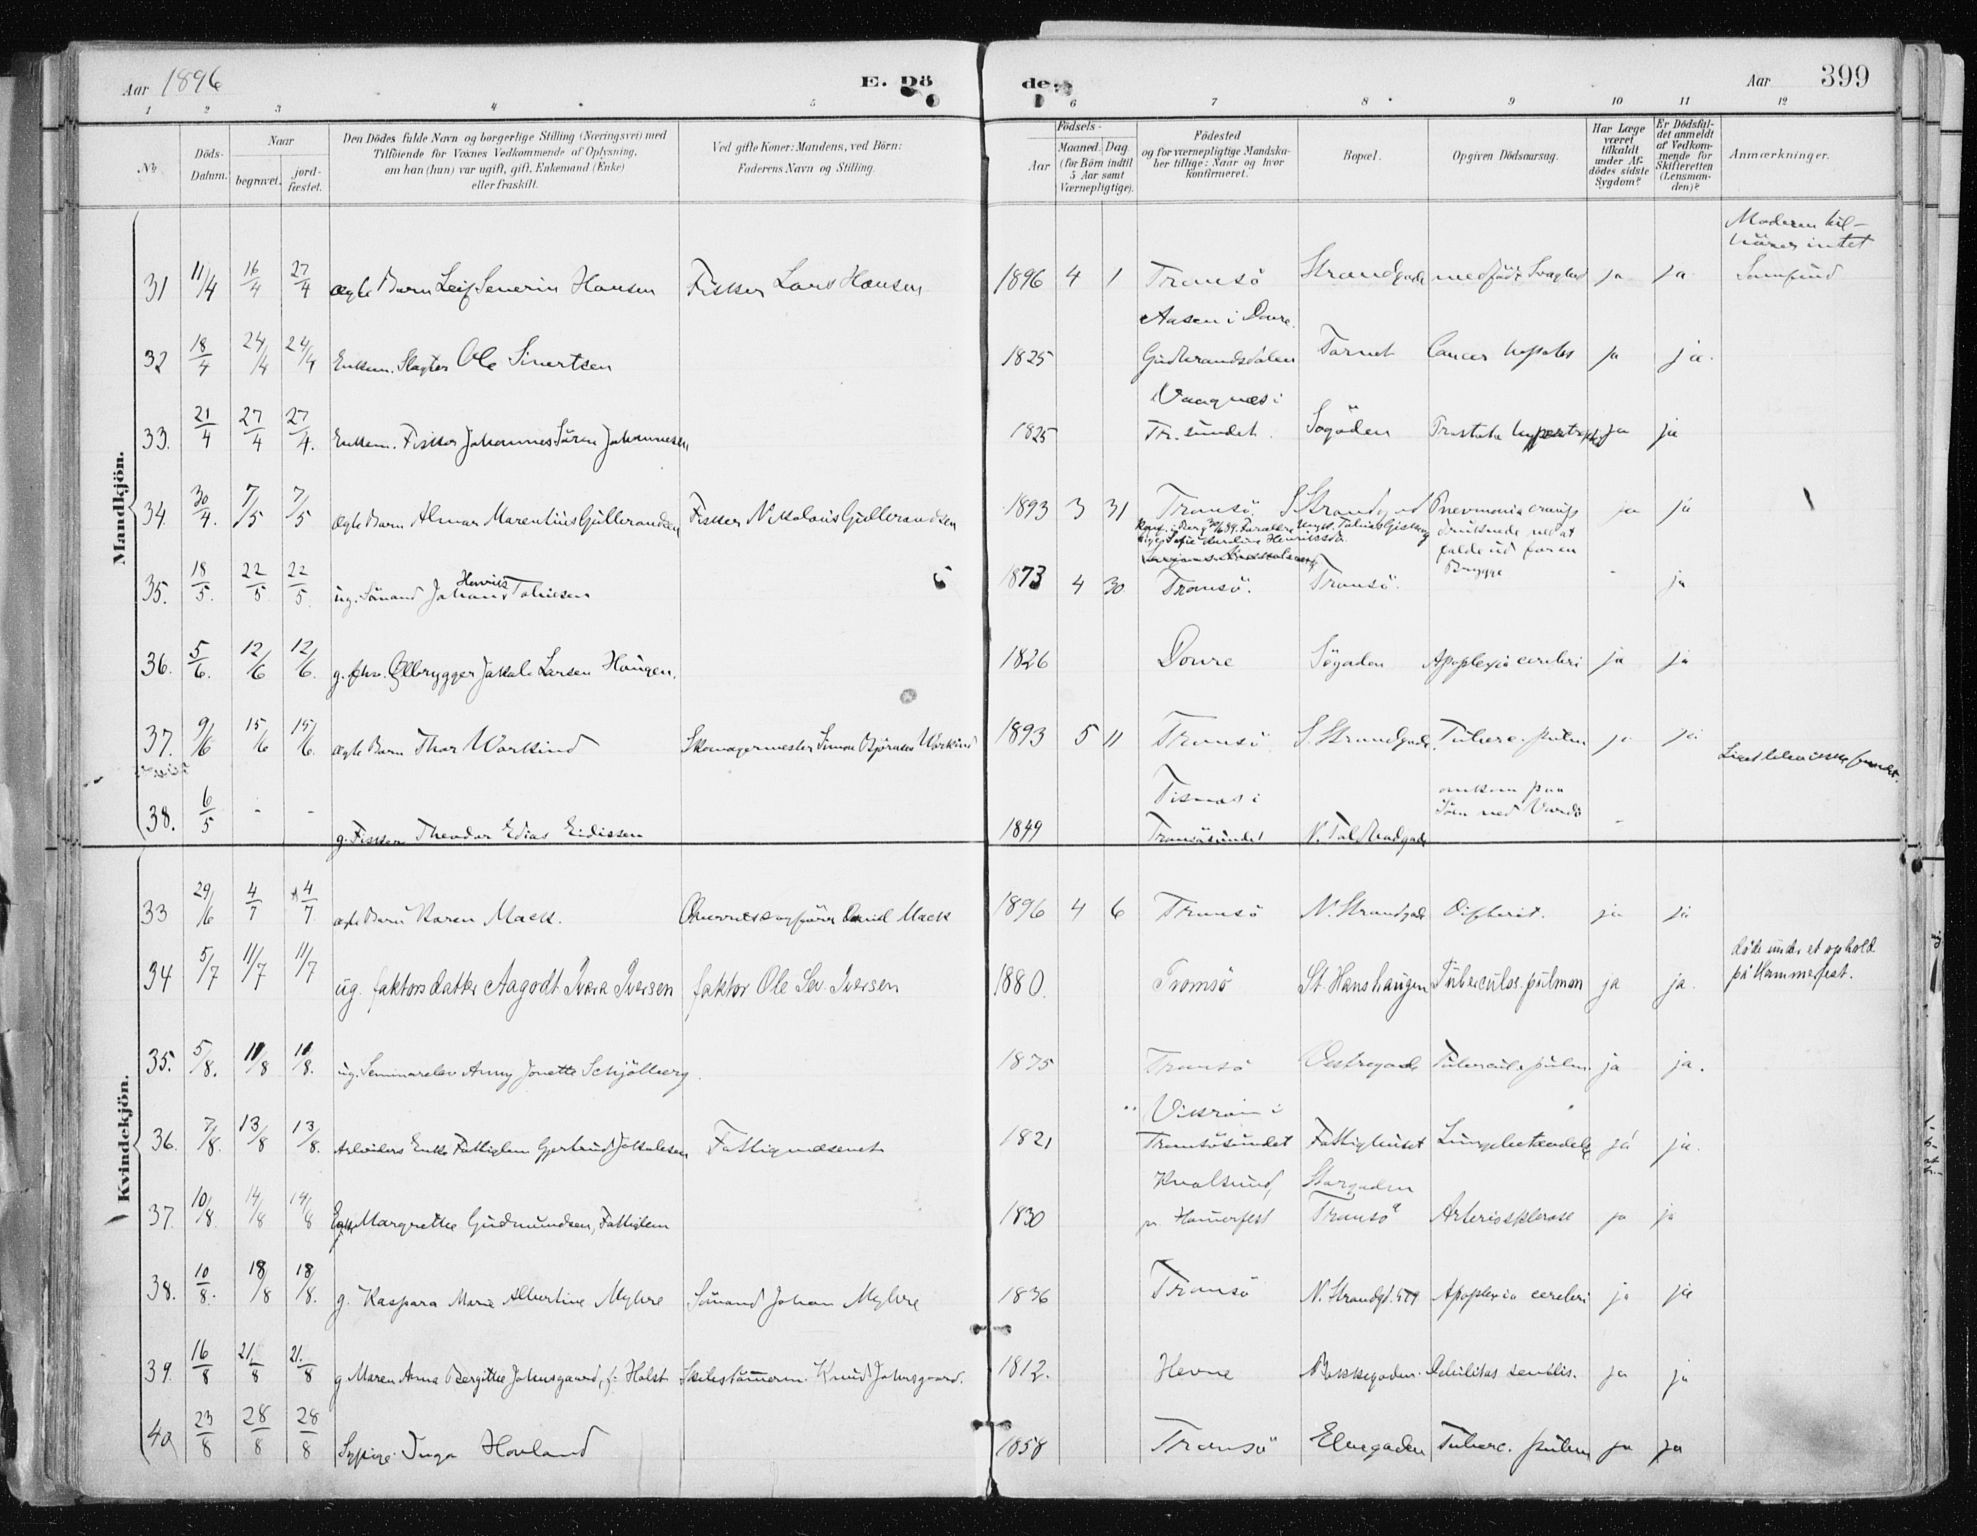 Aar 1896
E. Dö
de.
Aar 399
1 2 3 4 5 6 7 8 9 10 11 12
No.
Döds-Datum.
Naar
begravet.
jord-fæstet.
Den Dödes fulde Navn og borgerlige Stilling (Næringsvei) med
Tilföiende for Voxnes Vedkommende af Oplysning,
om han (hun) var ugift, gift, Enkemand (Enke)
eller fraskilt.
Ved gifte Koner: Mandens, ved Börn:
Faderens Navn og Stilling.
Födsels-
Aar
Maaned. Dag.
(for Börn indtil
5 Aar samt
Værnepligtige).
Födested
og for værnepligtige Mandska-
ber tillige: Naar og hvor
konfirmeret.
Bopæl.
Opgiven Dödsaarsag.
Har Læge
været
tilkaldt
under Af-
dödes sidste
Sygdom?
Er Dödsfal-
det anmeldt
af Vedkom-
mende for
Skifteretten
(Lensman-
den)?
Anmærkninger.
Mandkjön.
31 11/4 16/4 27/4 ægte Barn Leif Severin Hansen Fisker Lars Hansen 1896 4 1 Tromsö Strandgade medfödt Svaghed ja ja Moderen til-
hörer intet
Samfund
32 18/4 24/4 24/4 Enkem. Slagter Ole Sivertsen 1825 Aasen i Dovre
Gudbrandsdalen Tarnet Cancer hepatis ja ja.
33. 21/4 27/4 27/4. Enkem. Fisker Johannes Sören Johannesen 1825 Vaagnæs i
Tr. sundet. Sögaden Prostata hypertrophi ja ja
34. 30/4. 7/5 7/5 ægte Barn Almar Marentius Gulbrandsen Fisker Nikolaus Gulbrandsen 1893 3 31 Tromsö. S. Strandg Pnevmonia croup. ja ja
35. 18/5. 22/5 22/5. ug. Sömand Johan Henrik Tobiesen 1873 4 30 Tromsö. Tromsö. druknede ved at
falde ud for en
Brygge - ja
36. 5/6. 12/6 12/6. g. fhv. Ølbrygger Jakob Larsen Haugen. 1826 Dovre Sögaden Apoplexia cerebri ja ja
37. 9/6 15/6 15/6. ægte Barn Thor Workind Skomagermester Simon Workind 1893 5 11 Tromsö. S. Strandgade Tuberc. pulm ja ja
38. 6/5 - - g. Fisker Theodor Edias Eidissen 1849 Tisnæs i
Tromsösundet omkom paa
Söen ved Vardö - Liget blev ikke fundet.
Kvindekjön.
33 29/6 4/7 4/7 ægte Barn Karen Mack. Overretssagförer Mack 1896 4 6 Tromsö N. Strandgade Difterit. ja ja
34 5/7 11/7 11/7 ug. faktorsdatter Aagodt Ivara Iversen faktor Ole Sev. Iversen 1880. Tromsö St. Hanshaugen Tuberculos. pulmon ja ja. döde under et ophold
på Hammerfest.
35. 5/8. 11/8 11/8. ug. Seminarelev Anny Jonette Schjölberg. 1875 Tromsö Vestregade Tubercul. pulm. ja ja.
36. 7/8. 13/8 13/8. Arbeiders Enke Fattiglem Gjertrud Jakobsen Fattigvæsenet 1821 Vikran i
Tromsösundet Fattighuset Lungebetændelse ja ja.
37. 10/8. 14/8 14/8 Enke Margrethe Gudmundsen, Fattiglem 1830 Kvalsund,
pr. Hamerfest Storgaden
Tromsö Arteriosklerose ja ja
38. 10/8. 18/8 18/8. g. Kaspara Marie Albertine Myhre Sömand Johan Myhre 1836 Tromsö N. Strandgd. 479 Apoplexia cerebri ja ja
39. 16/8 21/8 21./8 g Maren Anna Bergitte Johnsgaard, f. Holst Skibstömerm. Knud Johnsgaard. 1812. Hevne Bakkegaden. Debilitas senilis. ja ja
40 23/8 28/8 28/8 Sypige Inga Hovland 1858 Tromsö Elvegaden Tuberc. pulm ja ja